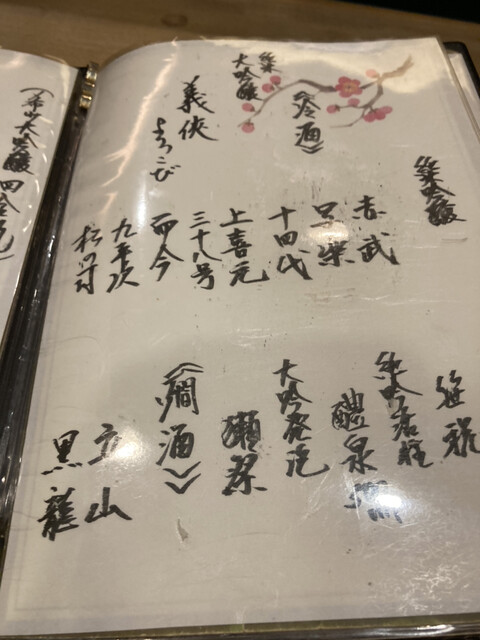 《冷酒》
純米
大吟醸
義侠
よろこび
純米吟醸
赤武
写楽
十四代
上喜元
三十八号
而今
九平次
松の司
笹祝
純吟
醴泉
大吟発泡
獺祭
《燗酒》
立山
黒龍
(希少大吟醸 四合瓶)